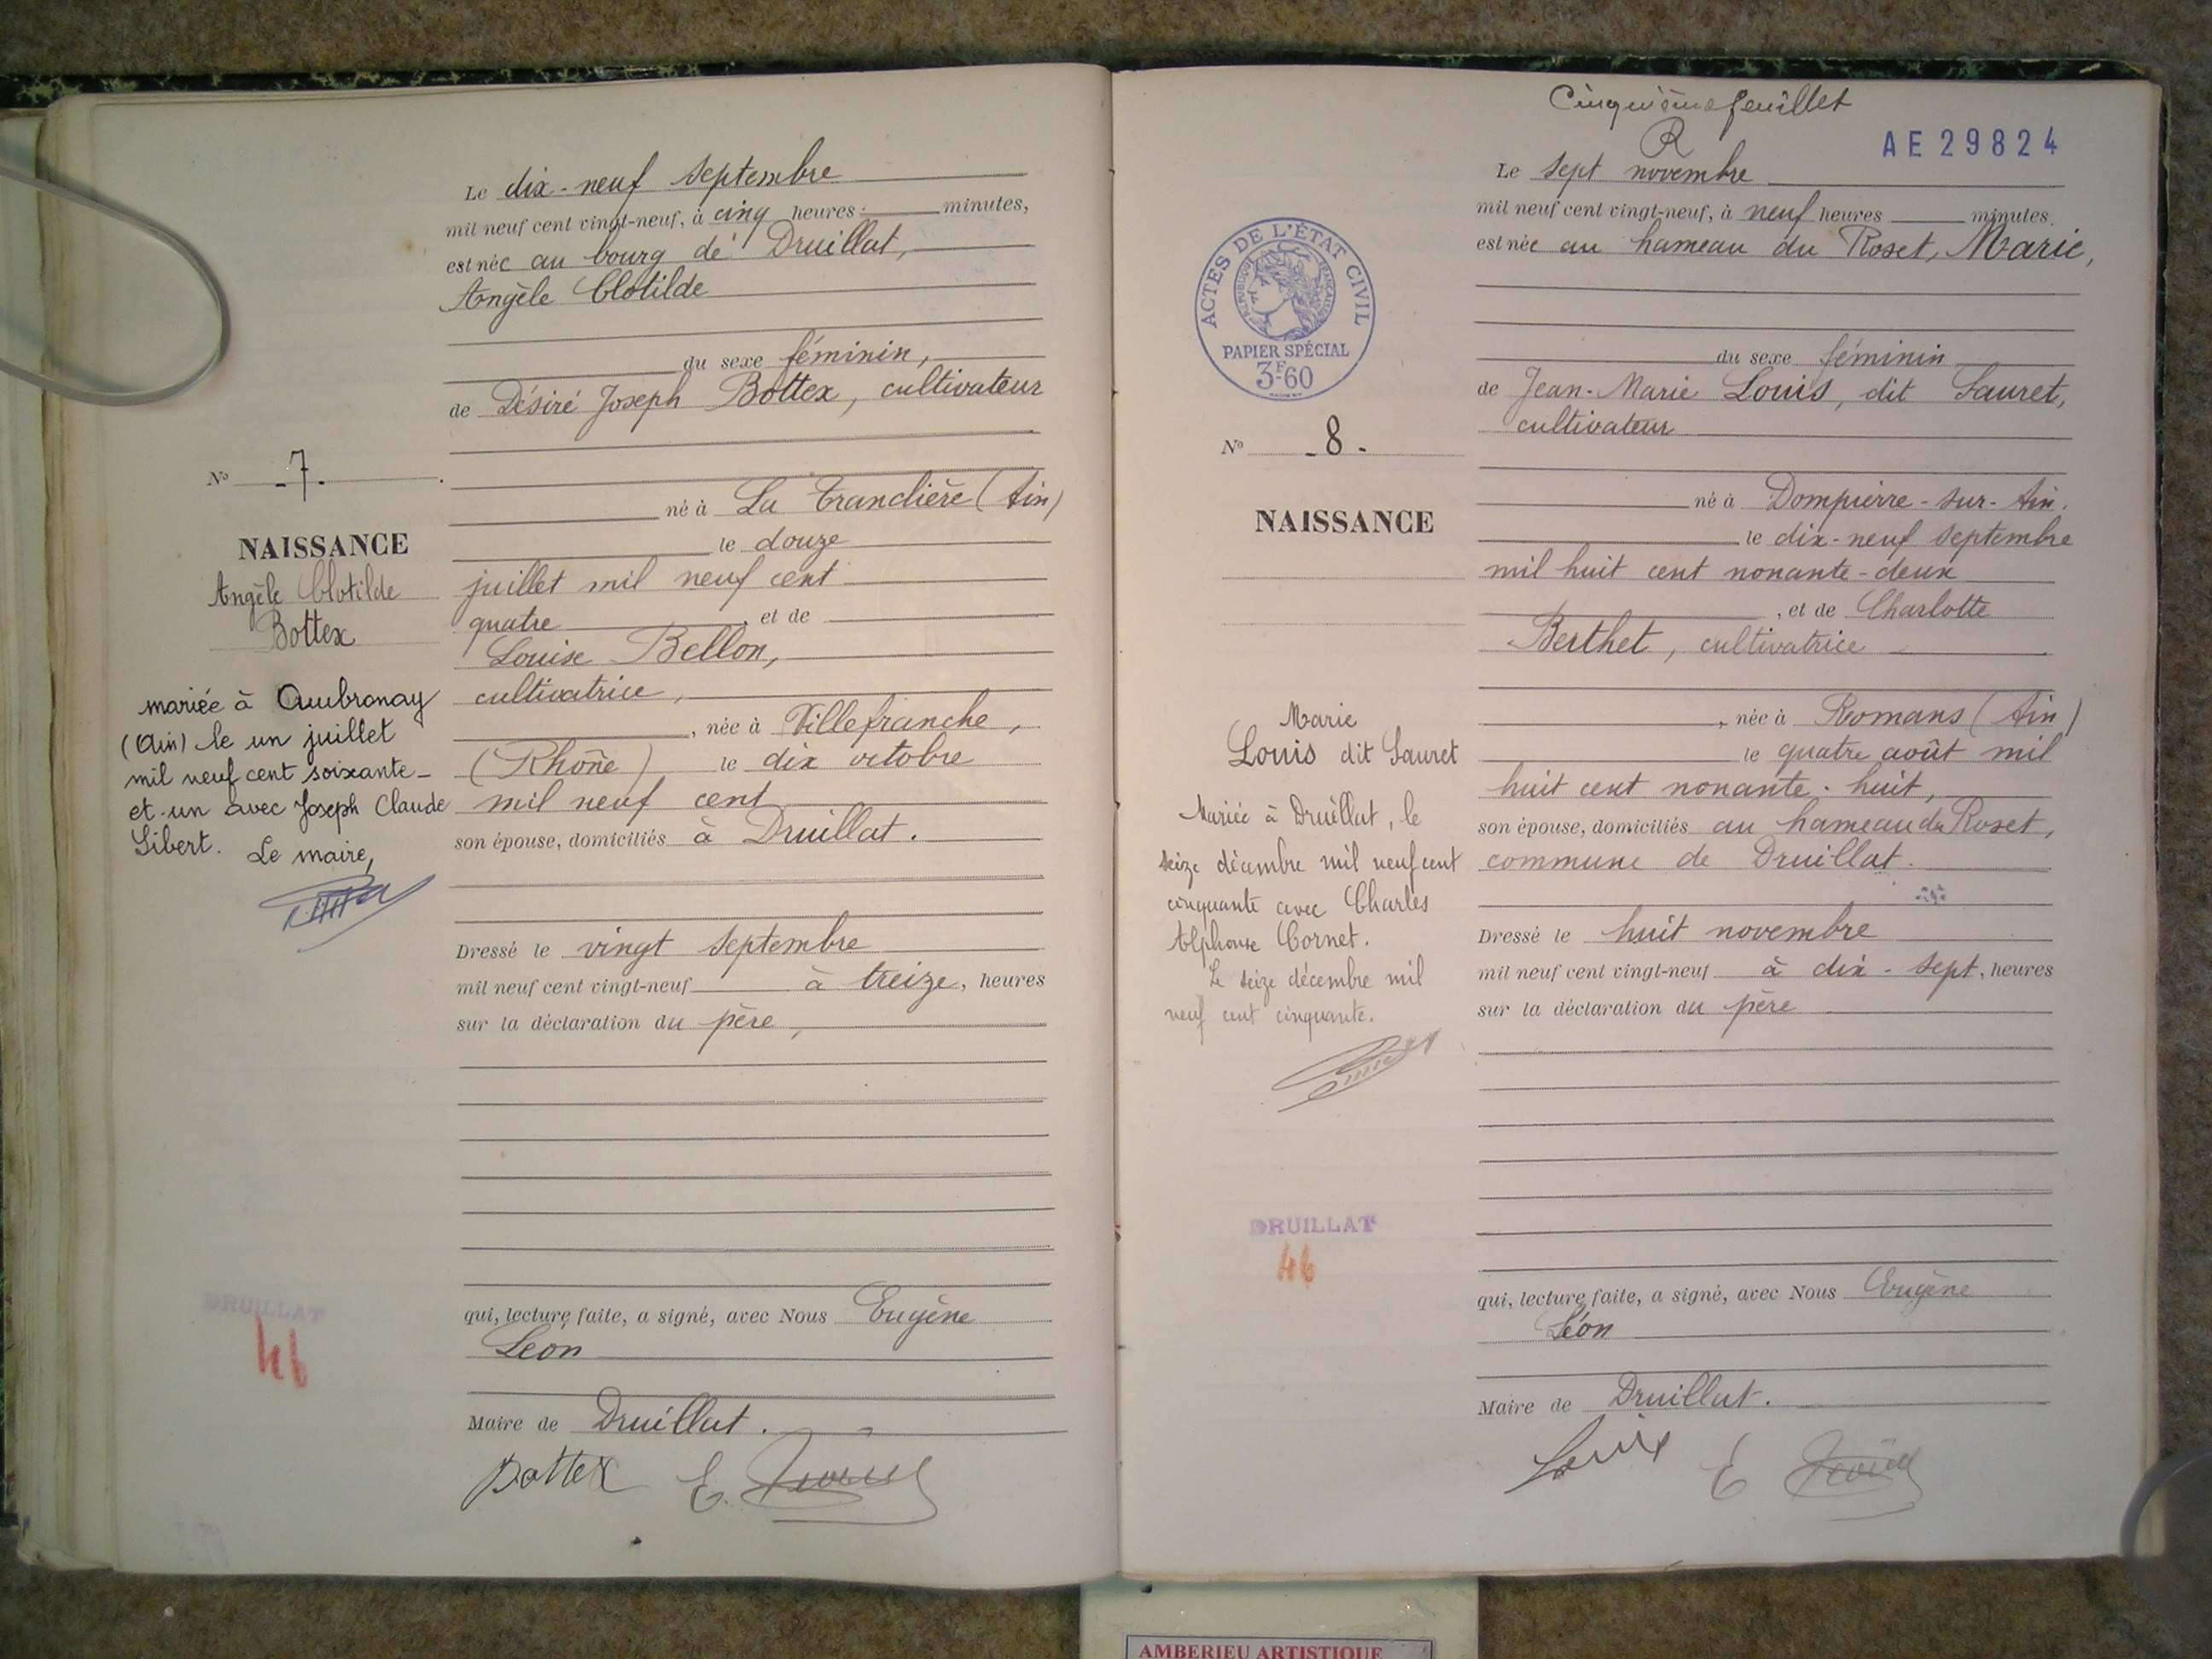 Le dix-neuf septembre
mil neuf cent vingt-neuf, à cinq heures minutes,
est née au bourg de Druillat,
Angèle Clotilde
du sexe féminin,
de Désiré Joseph Bottex, cultivateur
né à La Tranclière (Ain)
le douze
juillet mil neuf cent
quatre, et de
Louise Bellon,
cultivatrice,
, née à Villefranche,
(Rhône) le dix octobre
mil neuf cent
son épouse, domiciliés à Druillat.
Dressé le vingt septembre
mil neuf cent vingt-neuf à treize, heures
sur la déclaration du père,
qui, lecture faite, a signé, avec Nous Eugène
Léon
Maire de Druillat.
Bottex E.
No -7-
NAISSANCE
Angèle Clotilde
Bottex
mariée à Ambronay
(Ain) le un juillet
mil neuf cent soixante-
et-un avec Joseph Claude
Gibert. Le maire,
DRUILLAT
46
Cinquième feuillet
R
AE29824
Le sept novembre
mil neuf cent vingt-neuf, à neuf heures minutes.
est née au hameau du Roset, Marie,
du sexe féminin
de Jean-Marie Louis, dit Sauret,
cultivateur
né à Dompierre-sur-Ain.
le dix-neuf septembre
mil huit cent nonante-deux
, et de Charlotte
Berthet, cultivatrice
, née à Romans (Ain)
le quatre août mil
huit cent nonante-huit,
son épouse, domiciliés au hameau du Roset,
commune de Druillat.
Dressé le huit novembre
mil neuf cent vingt-neuf à dix-sept, heures
sur la déclaration du père
qui, lecture faite, a signé, avec Nous Eugène
Léon
Maire de Druillat.
Louis E
ACTES DE L'ÉTAT CIVIL
RÉPUBLIQUE FRANÇAISE
PAPIER SPÉCIAL
3F60
No -8-
NAISSANCE
Marie
Louis dit Sauret
Mariée à Druillat, le
seize décembre mil neuf cent
cinquante avec Charles
Alphonse Cornet.
Le seize décembre mil
neuf cent cinquante.
DRUILLAT
46
AMBERIEU ARTISTIQUE